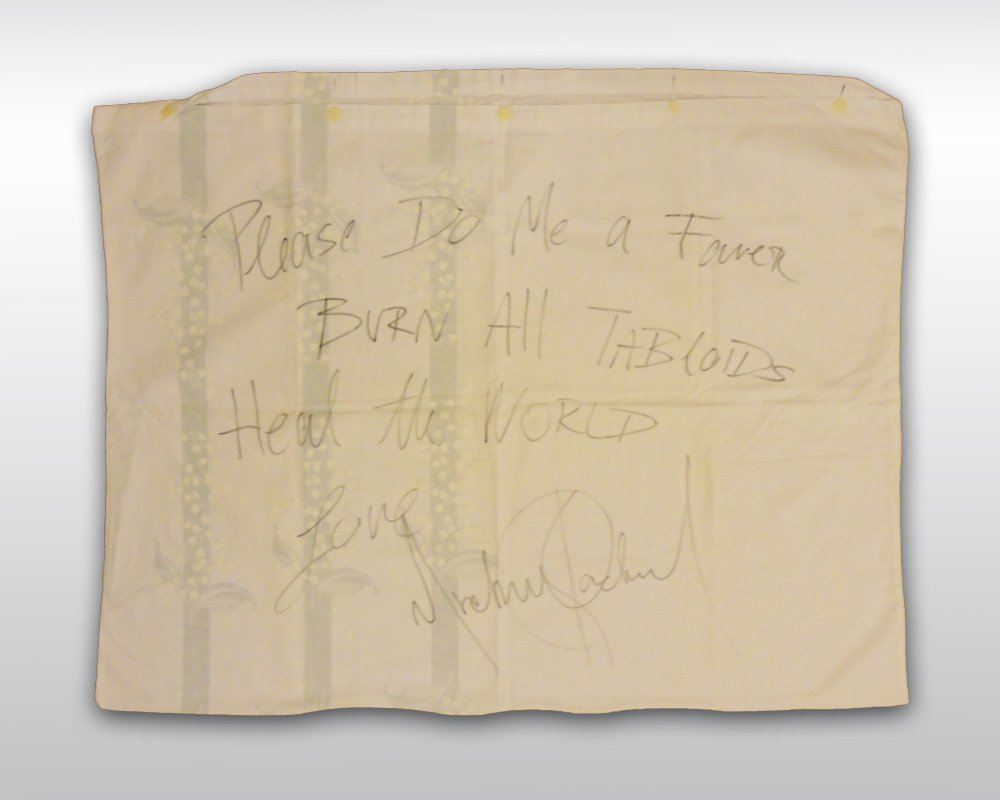 Please Do Me a Faver
BURN All TABLOIDS
Heal the WORLD
Love
Michael Jackson